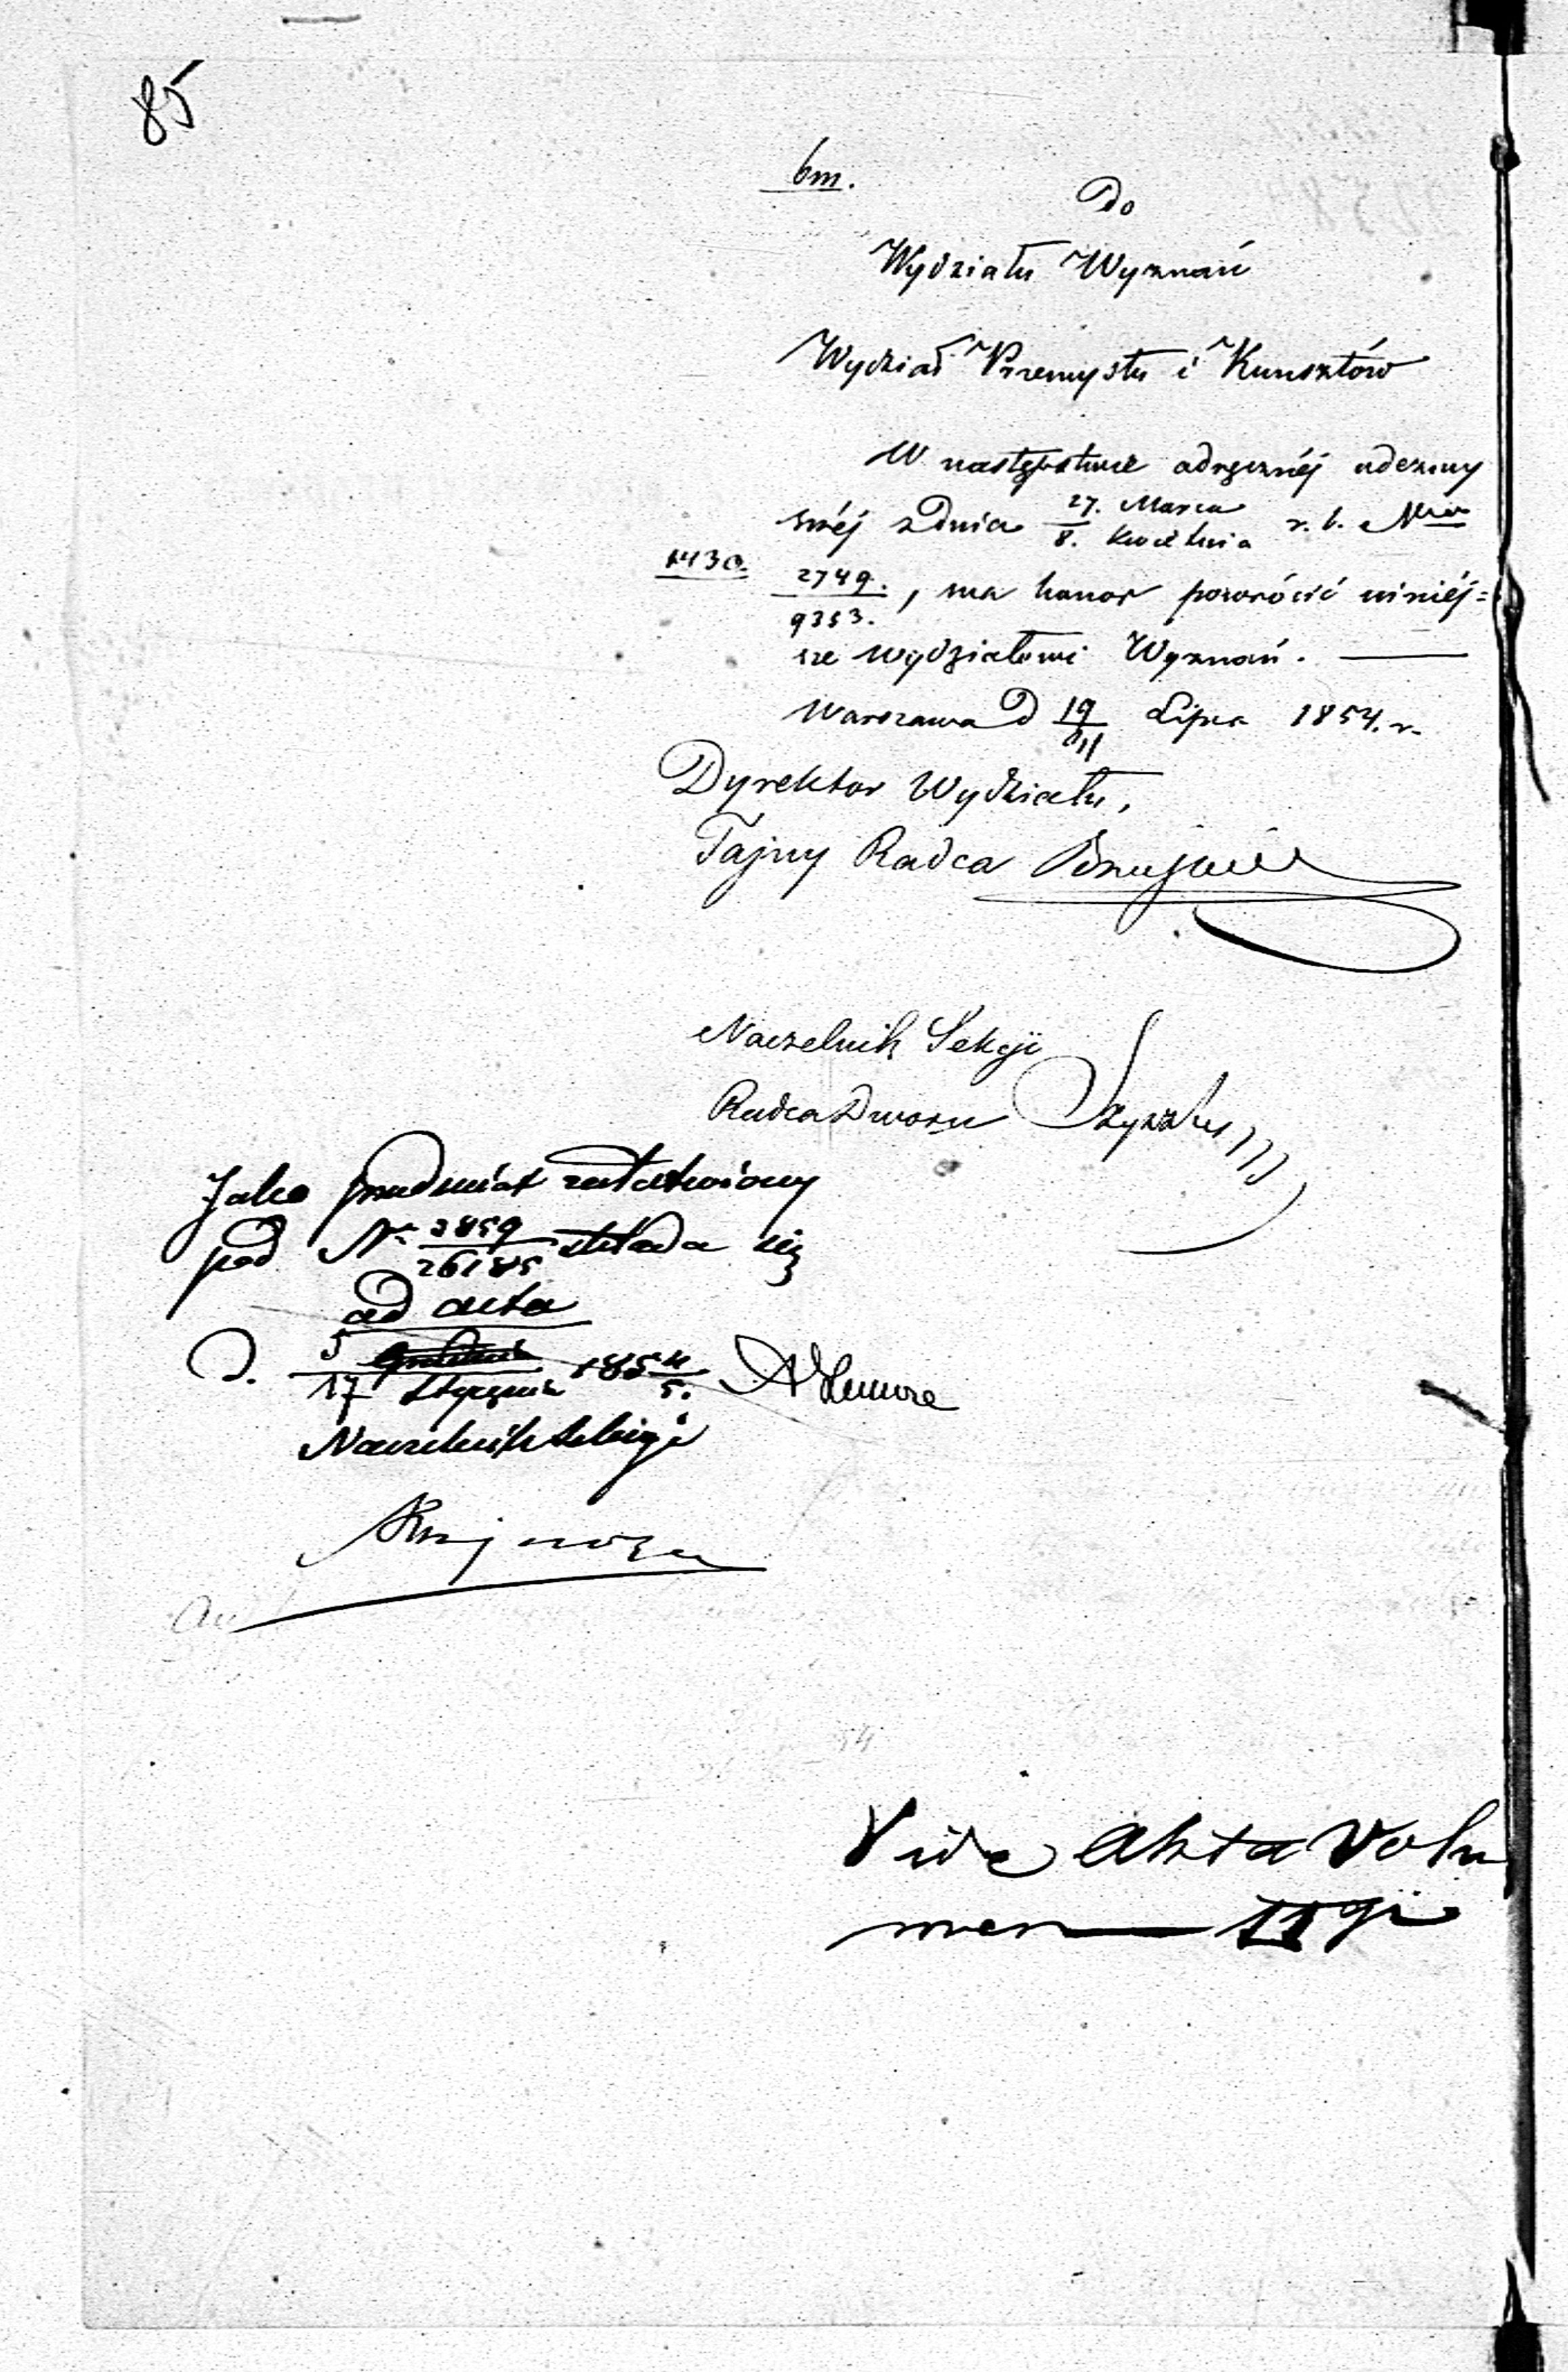 85
bm.
Do
Wydziału Wyznań
Wydział Przemysłu i Kunsztów
W następstwie odręcznéj odezwy
swéj z Dnia 27. Marca / 8. Kwietnia r. b. Nro
1430.
2749. / 9353., ma honor powrócić niniéj=
sze wydziałowi Wyznań. —
Warszawa D 19 / VII Lipca 1854. r.
Dyrektor Wydziału,
Tajny Radca
Naczelnik Sekcji
Radca Dworu
Jako przedmiot załatwiony
pod Nr 2859 / 26185 składa się
ad acta
D. 5 Grudnia / 17 Stycznia 185 4/5.
Naczelnik Sekcyi
Vide Akta Volu
men II gi